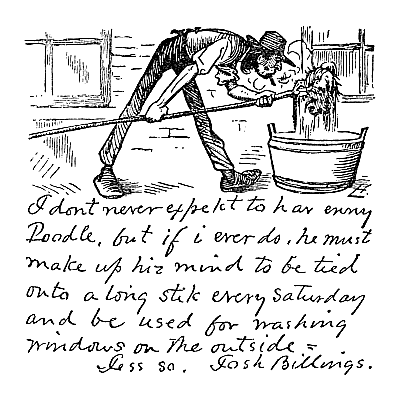 I dont never expekt to hav enny
Poodle, but if i ever do, he must
make up hiz mind to be tied
onto a long stik every Saturday
and be used for washing
windows on the outside =
Jess so. Josh Billings.